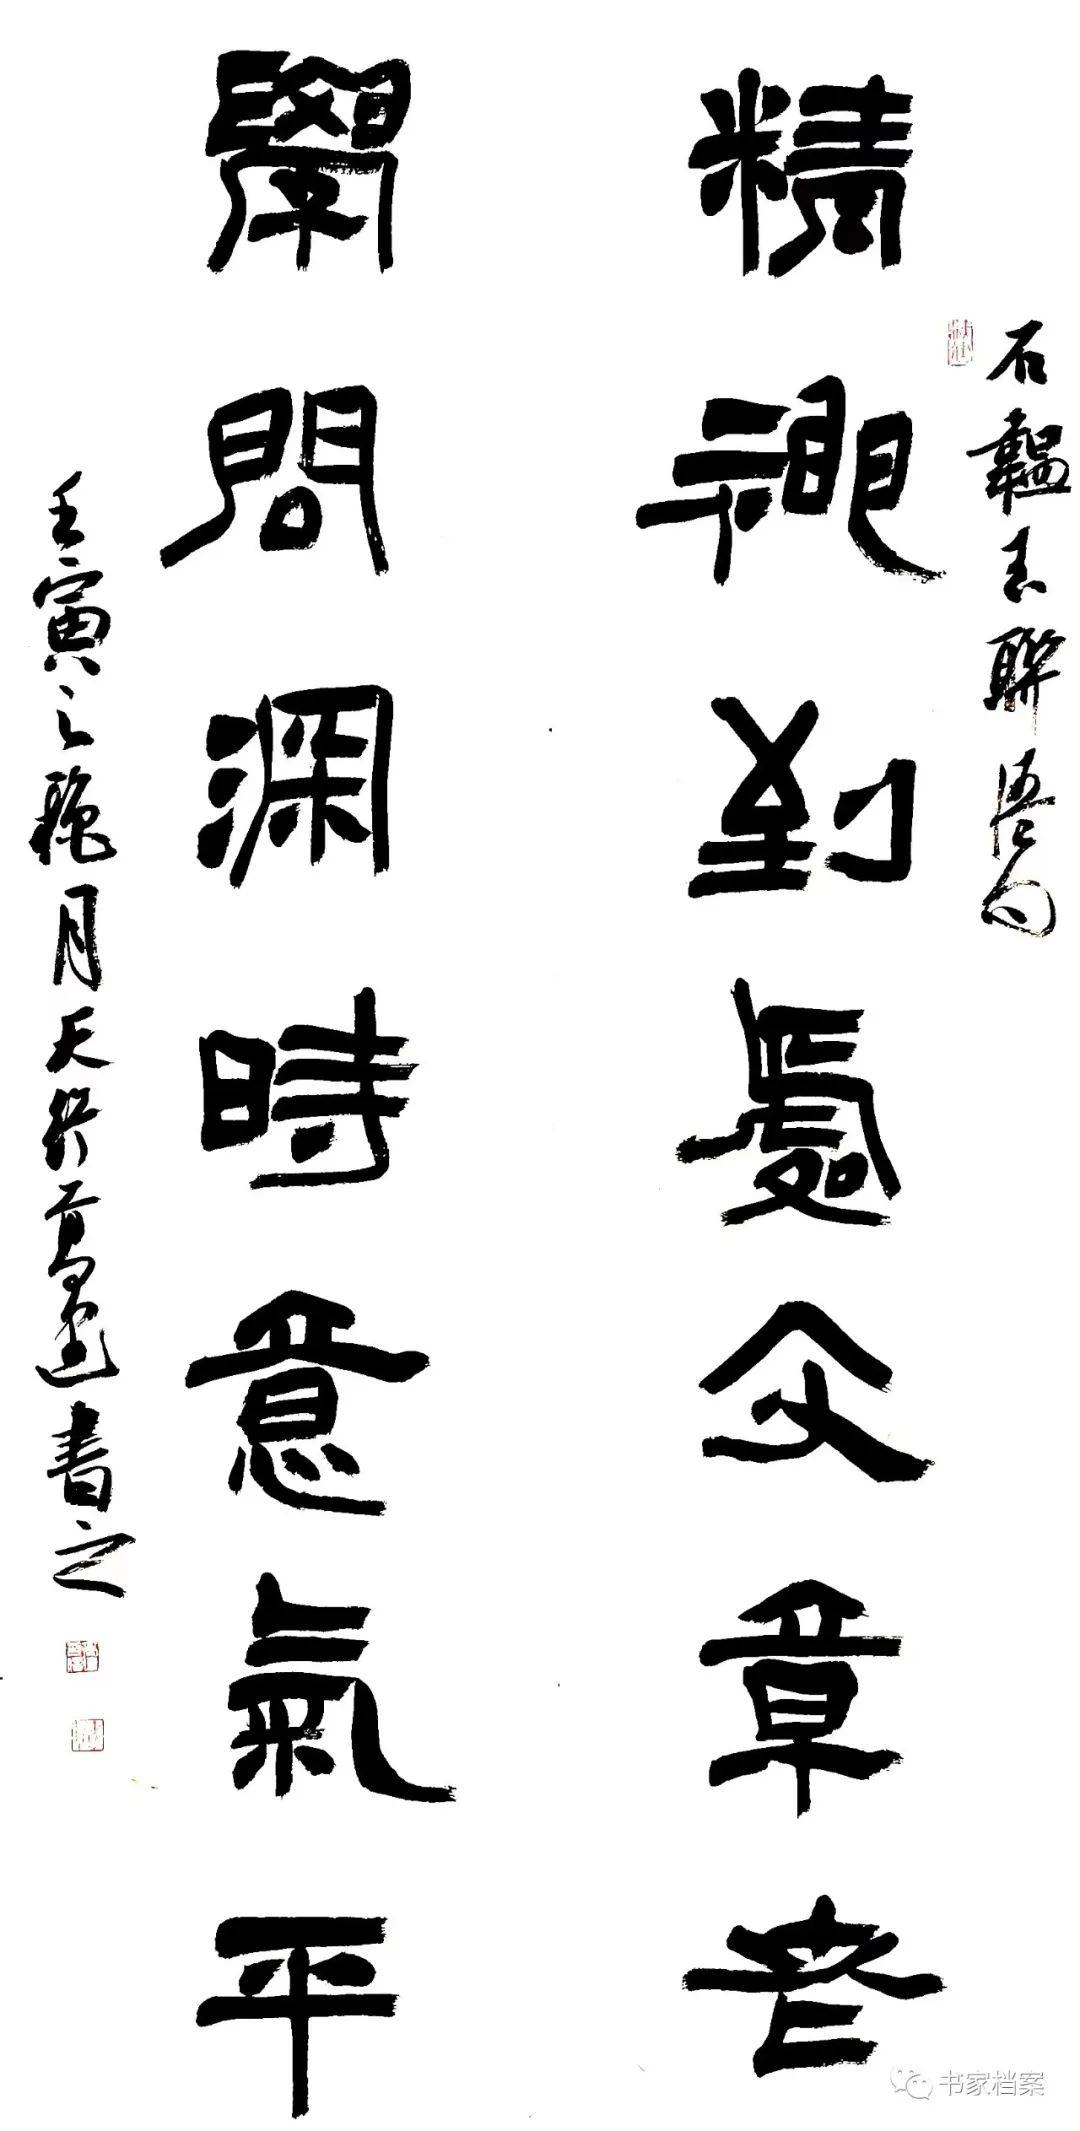 石韞玉聯語句
精神到處文章老
學問深時意氣平
壬寅之穐月天行葛進書之
书家档案